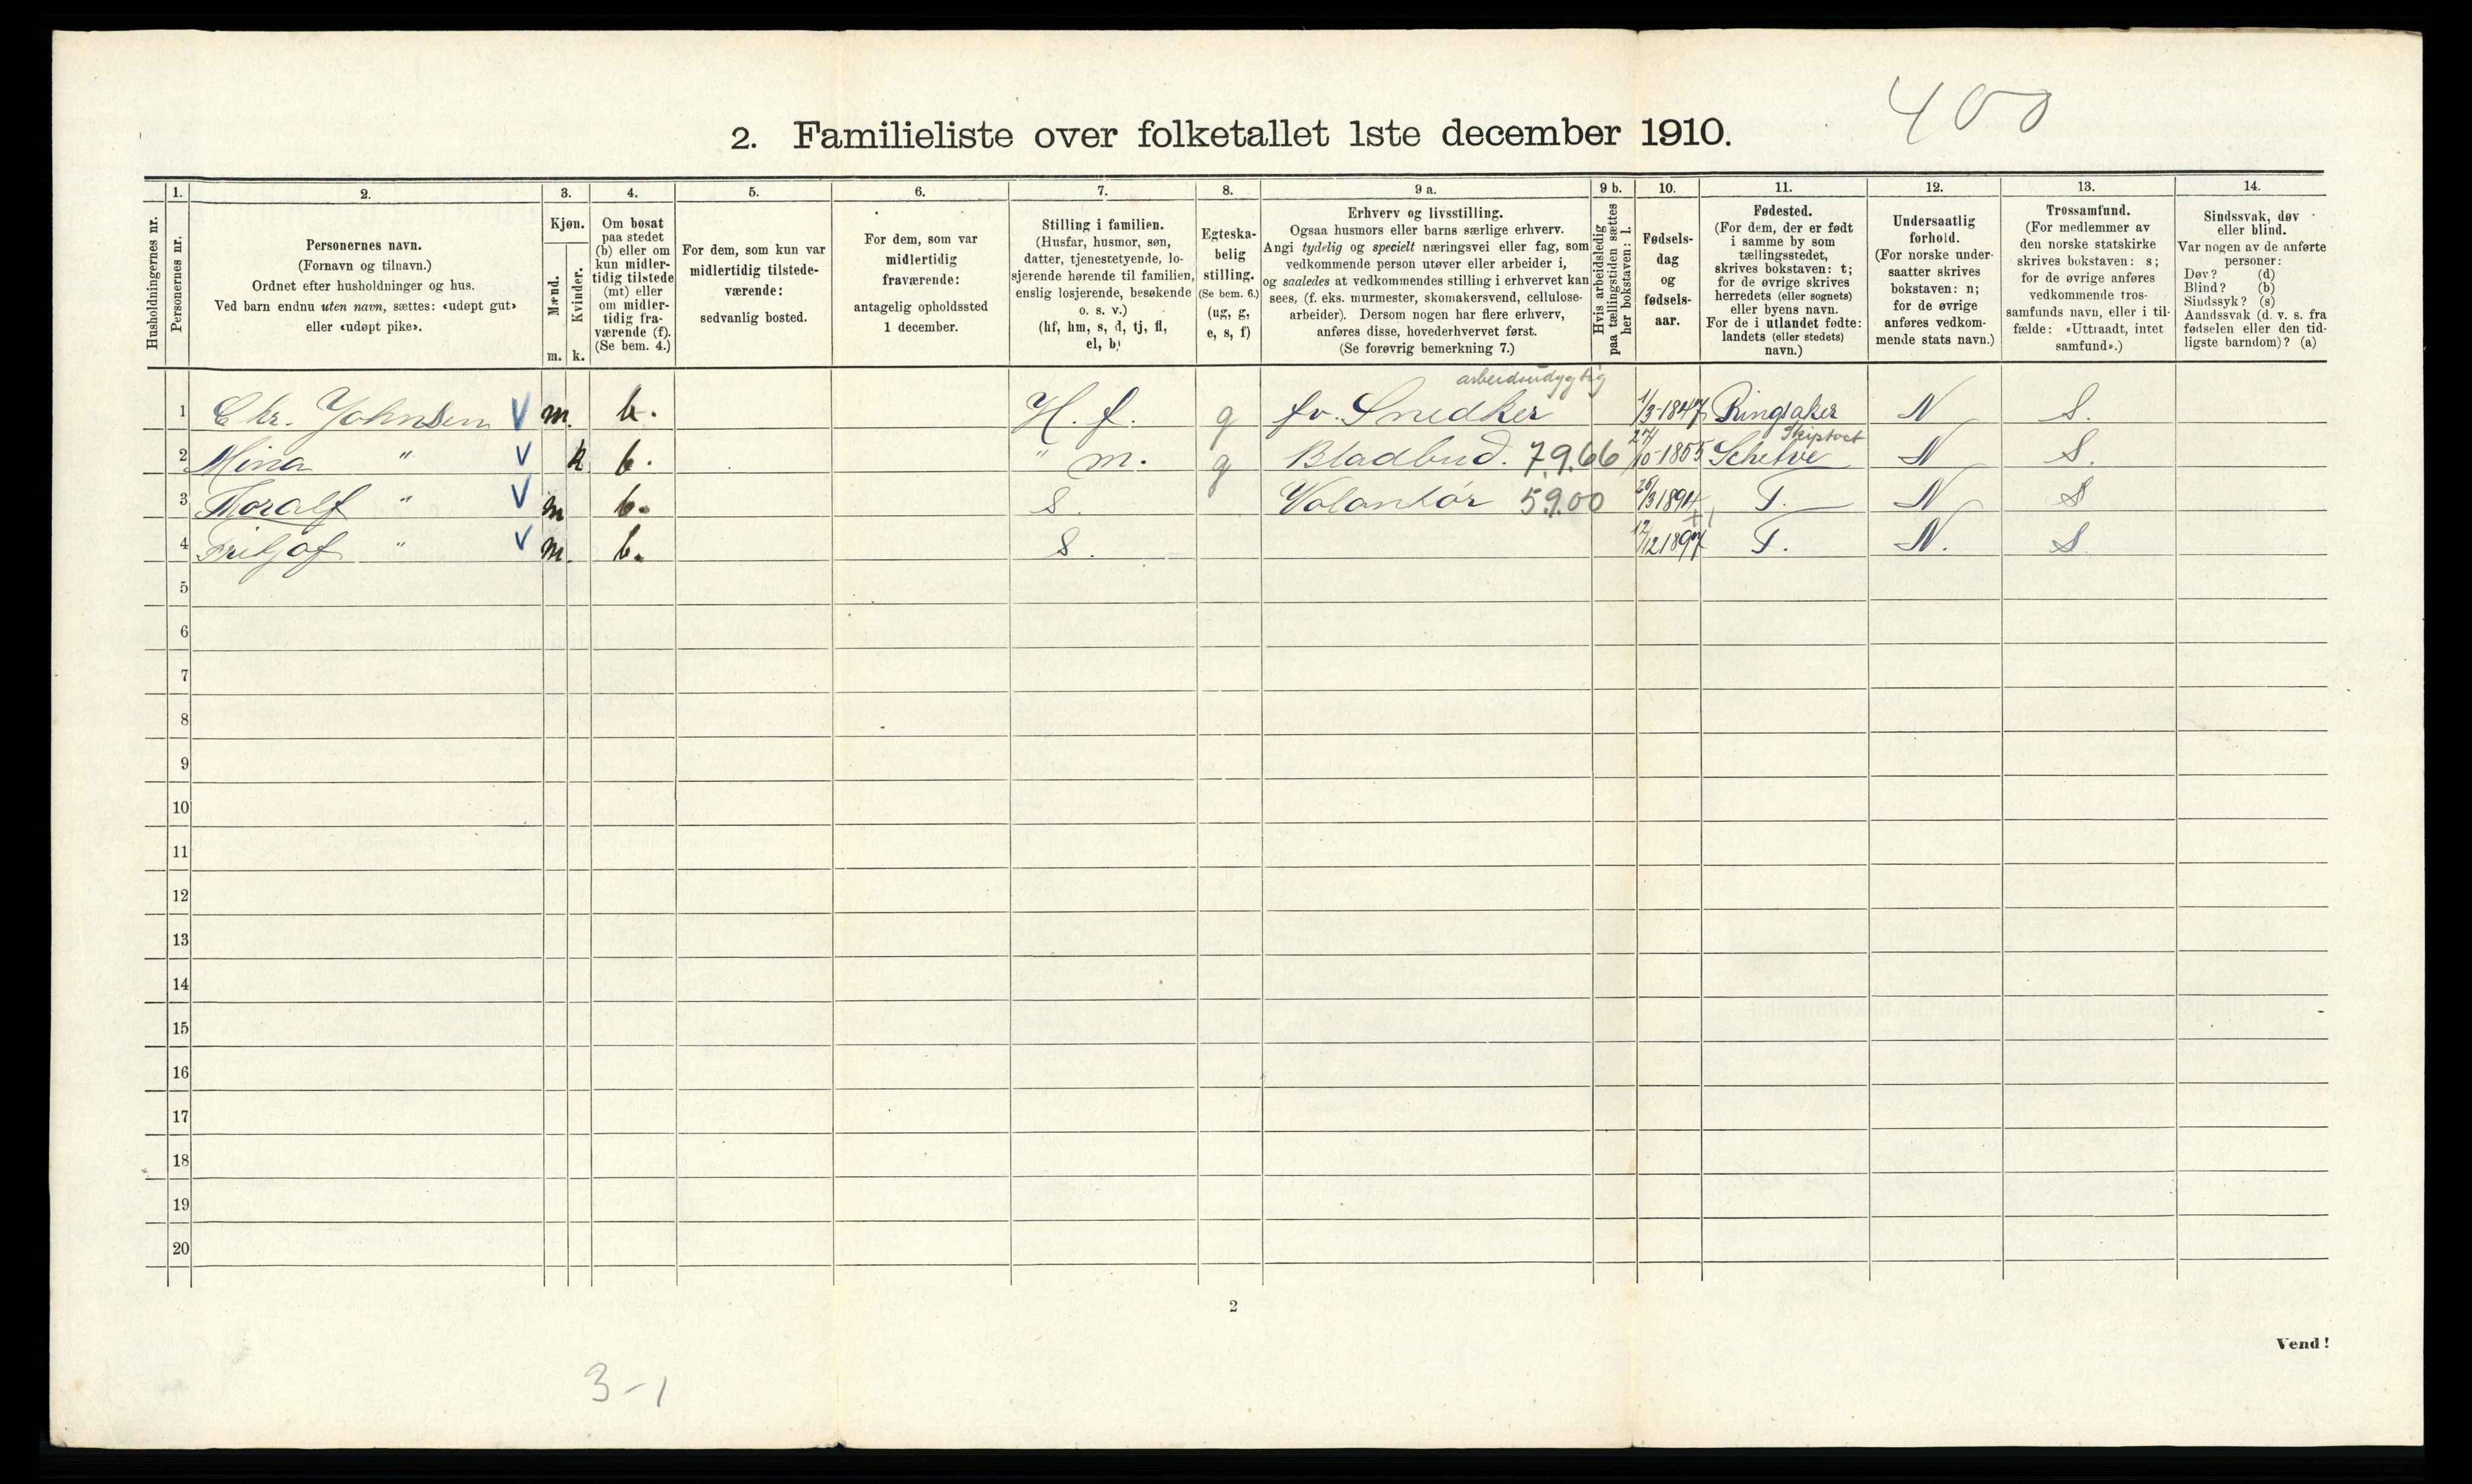 400
2. Familieliste over folketallet 1ste december 1910.
Husholdningernes nr.
1.
Personernes nr.
2.
Personernes navn.
(Fornavn og tilnavn.)
Ordnet efter husholdninger og hus.
Ved barn endnu uten navn, sættes: «udøpt gut»
eller «udøpt pike».
3.
Kjøn.
Mænd.
Kvinder.
m. k.
4.
Om bosat
paa stedet
(b) eller om
kun midler-
tidig tilstede
(mt) eller
om midler-
tidig fra-
værende (f).
(Se bem. 4.)
5.
For dem, som kun var
midlertidig tilstede-
værende:
sedvanlig bosted.
6.
For dem, som var
midlertidig
fraværende:
antagelig opholdssted
1 december.
7.
Stilling i familien.
(Husfar, husmor, søn,
datter, tjenestetyende, lo-
sjerende hørende til familien,
enslig losjerende, besøkende
o. s. v.)
(hf, hm, s, d, tj, fl,
el, b)
8.
Egteska-
belig
stilling.
(Se bem. 6.)
(ug, g,
e, s, f)
9 a.
Erhverv og livsstilling.
Ogsaa husmors eller barns særlige erhverv.
Angi tydelig og specielt næringsvei eller fag, som
vedkommende person utøver eller arbeider i,
og saaledes at vedkommendes stilling i erhvervet kan
sees, (f. eks. murmester, skomakersvend, cellulose-
arbeider). Dersom nogen har flere erhverv,
anføres disse, hovederhvervet først.
(Se forøvrig bemerkning 7.)
9 b.
Hvis arbeidsledig
paa tællingstiden sættes
her bokstaven: l.
10.
Fødsels-
dag
og
fødsels-
aar.
11.
Fødested.
(For dem, der er født
i samme by som
tællingsstedet,
skrives bokstaven: t;
for de øvrige skrives
herredets (eller sognets)
eller byens navn.
For de i utlandet fødte:
landets (eller stedets)
navn.)
12.
Undersaatlig
forhold.
(For norske under-
saatter skrives
bokstaven: n;
for de øvrige
anføres vedkom-
mende stats navn.)
13.
Trossamfund.
(For medlemmer av
den norske statskirke
skrives bokstaven: s;
for de øvrige anføres
vedkommende tros-
samfunds navn, eller i til-
fælde: «Uttraadt, intet
samfund».)
14.
Sindssvak, døv
eller blind.
Var nogen av de anførte
personer:
Døv? (d)
Blind? (b)
Sindssyk? (s)
Aandssvak (d. v. s. fra
fødselen eller den tid-
ligste barndom)? (a)
arbeidsudygtig
1 Chr. Johnsen V m. b. H. f. g fv. Snedker 1/3-1847 Ringsaker N S.
Skiptvet
2 Mina " V k b. " m. g Bladbud. 7.9.66 27/10-1855 Schetve N S.
3 Thoralf " V m b. S. Volontör 5.9.00 26/3 1894 T. N S
4 Fritjof " V m. b. S. 12/12 1897 T. N. S.
5
6
7
8
9
10
11
12
13
14
15
16
17
18
19
20
2
Vend!
3-1